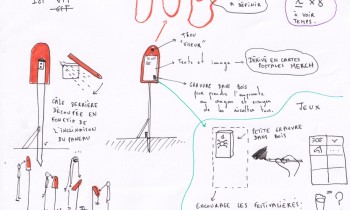 OFF
À DÉFINIR
x 8
À VOIR
TEMPS.
TROU
"VISEUR"
Texte et image
DÉRIVÉ EN CARTES
POSTALES MERCH
GRAVURE DANS BOIS
pour prendre l'empreinte
au crayon et essayer
de les récolter tous.
CÂLE DERRIÈRE
DÉCOUPÉE EN
FONCTIO DE
L'INCLINAISON
DU PANEAU
JEUX
PETITE GRAVURE
DANS BOIS
ENCOURAGE LES FESTIVALIÈRES
= ?